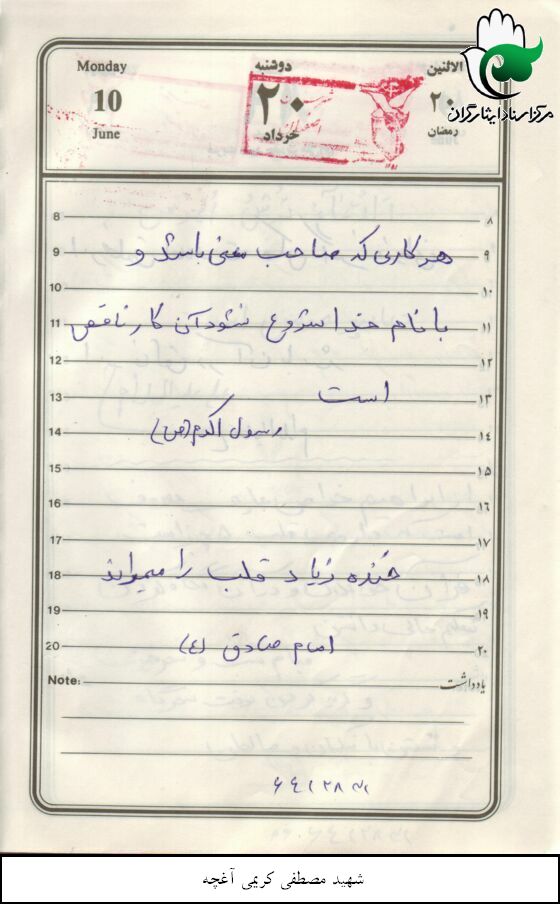 مرکز اسناد ایثارگران
Monday دوشنبه الاثنین
10 ۲۰ ۲۰
June خرداد رمضان
8 ۸
هر کاری که صاحب معنی باشد و
9 ۹
10 ۱۰
با نام خدا شروع نشود آن کار ناقص
11 ۱۱
12 ۱۲
است
13 ۱۳
رسول اکرم (ص)
14 ۱۴
15 ۱۵
16 ۱۶
17 ۱۷
خنده زیاد قلب را میمیراند
18 ۱۸
19 ۱۹
امام صادق (ع)
20 ۲۰
Note: یادداشت
شهید مصطفی کریمی آغچه